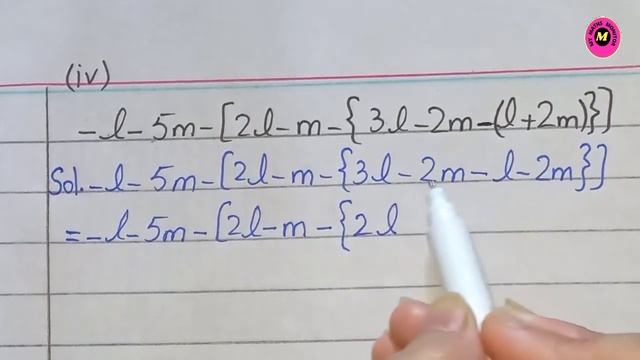 MY MATHS MONITOR
M
(iv)
-l-5m-[2l-m-{3l-2m-(l+2m)}]
Sol. -l-5m-[2l-m-{3l-2m-l-2m}]
=-l-5m-[2l-m-{2l